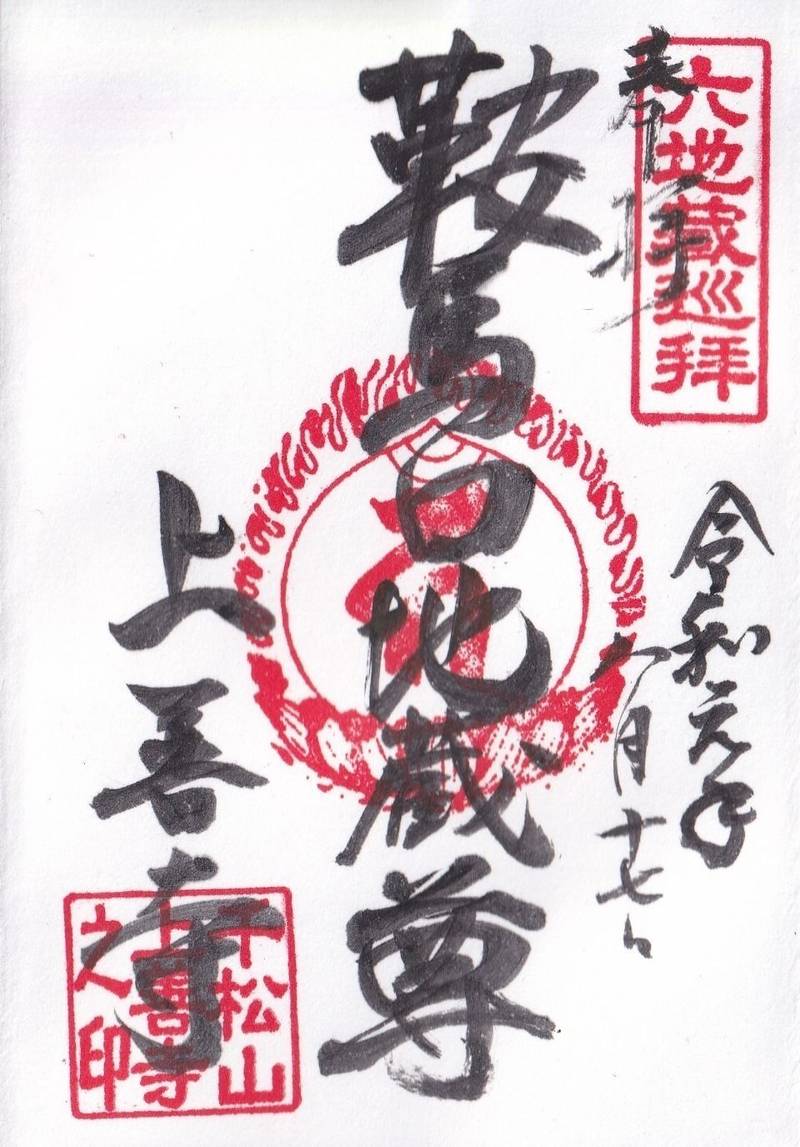 奉拝
六地蔵巡拝
令和元年
八月十七日
鞍馬口地蔵尊
上善寺
千松山
上善寺
之印